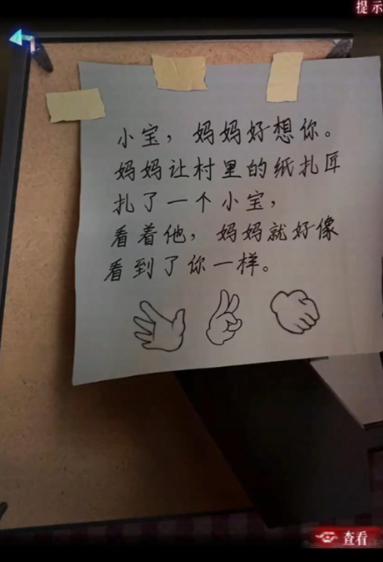 提示
小宝，妈妈好想你。
妈妈让村里的纸扎匠
扎了一个小宝，
看着他，妈妈就好像
看到了你一样。
查看